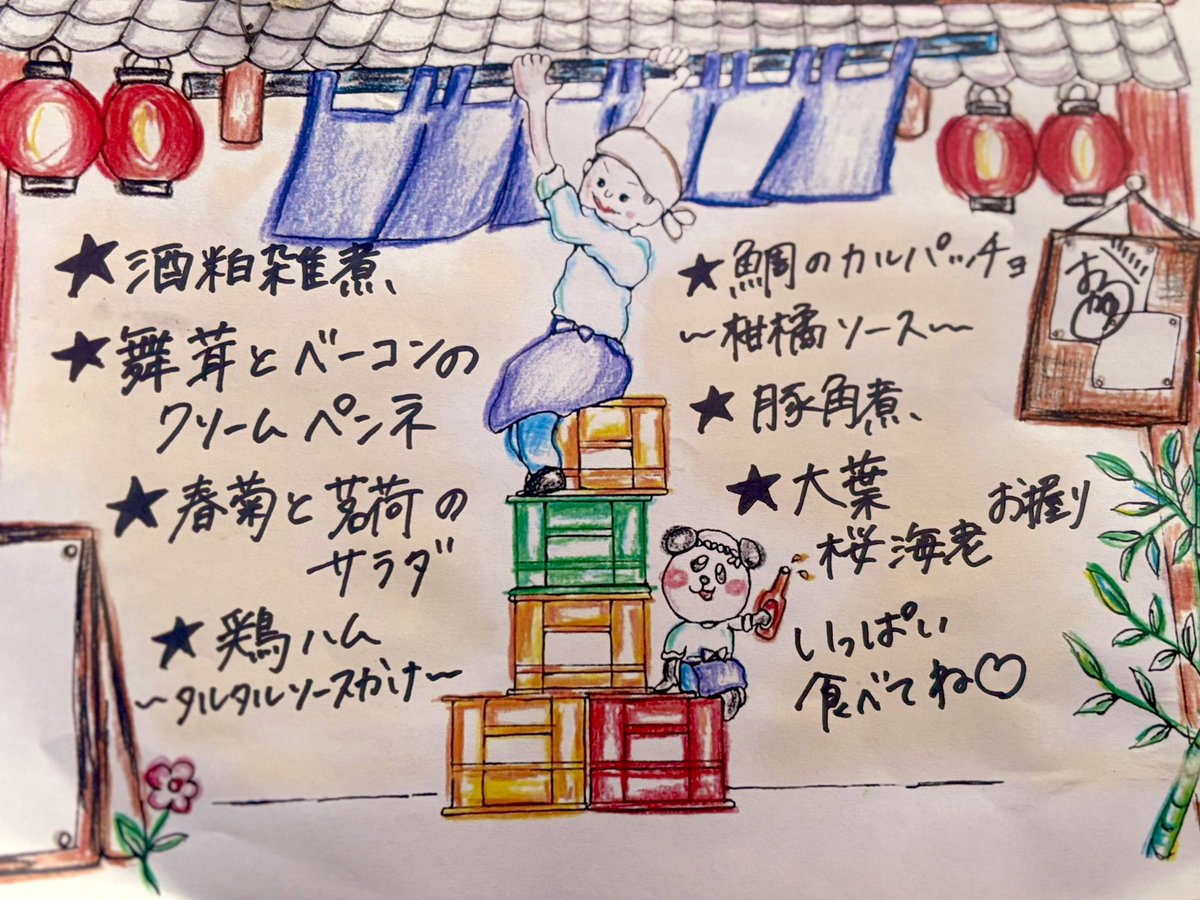 ★酒粕雑煮
★舞茸とベーコンの
クリームペンネ
★春菊と茗荷の
サラダ
★鶏ハム
~タルタルソースがけ~
★鯛のカルパッチョ
~柑橘ソース~
★豚角煮
★大葉
桜海老
お握り
いっぱい
食べてね♡